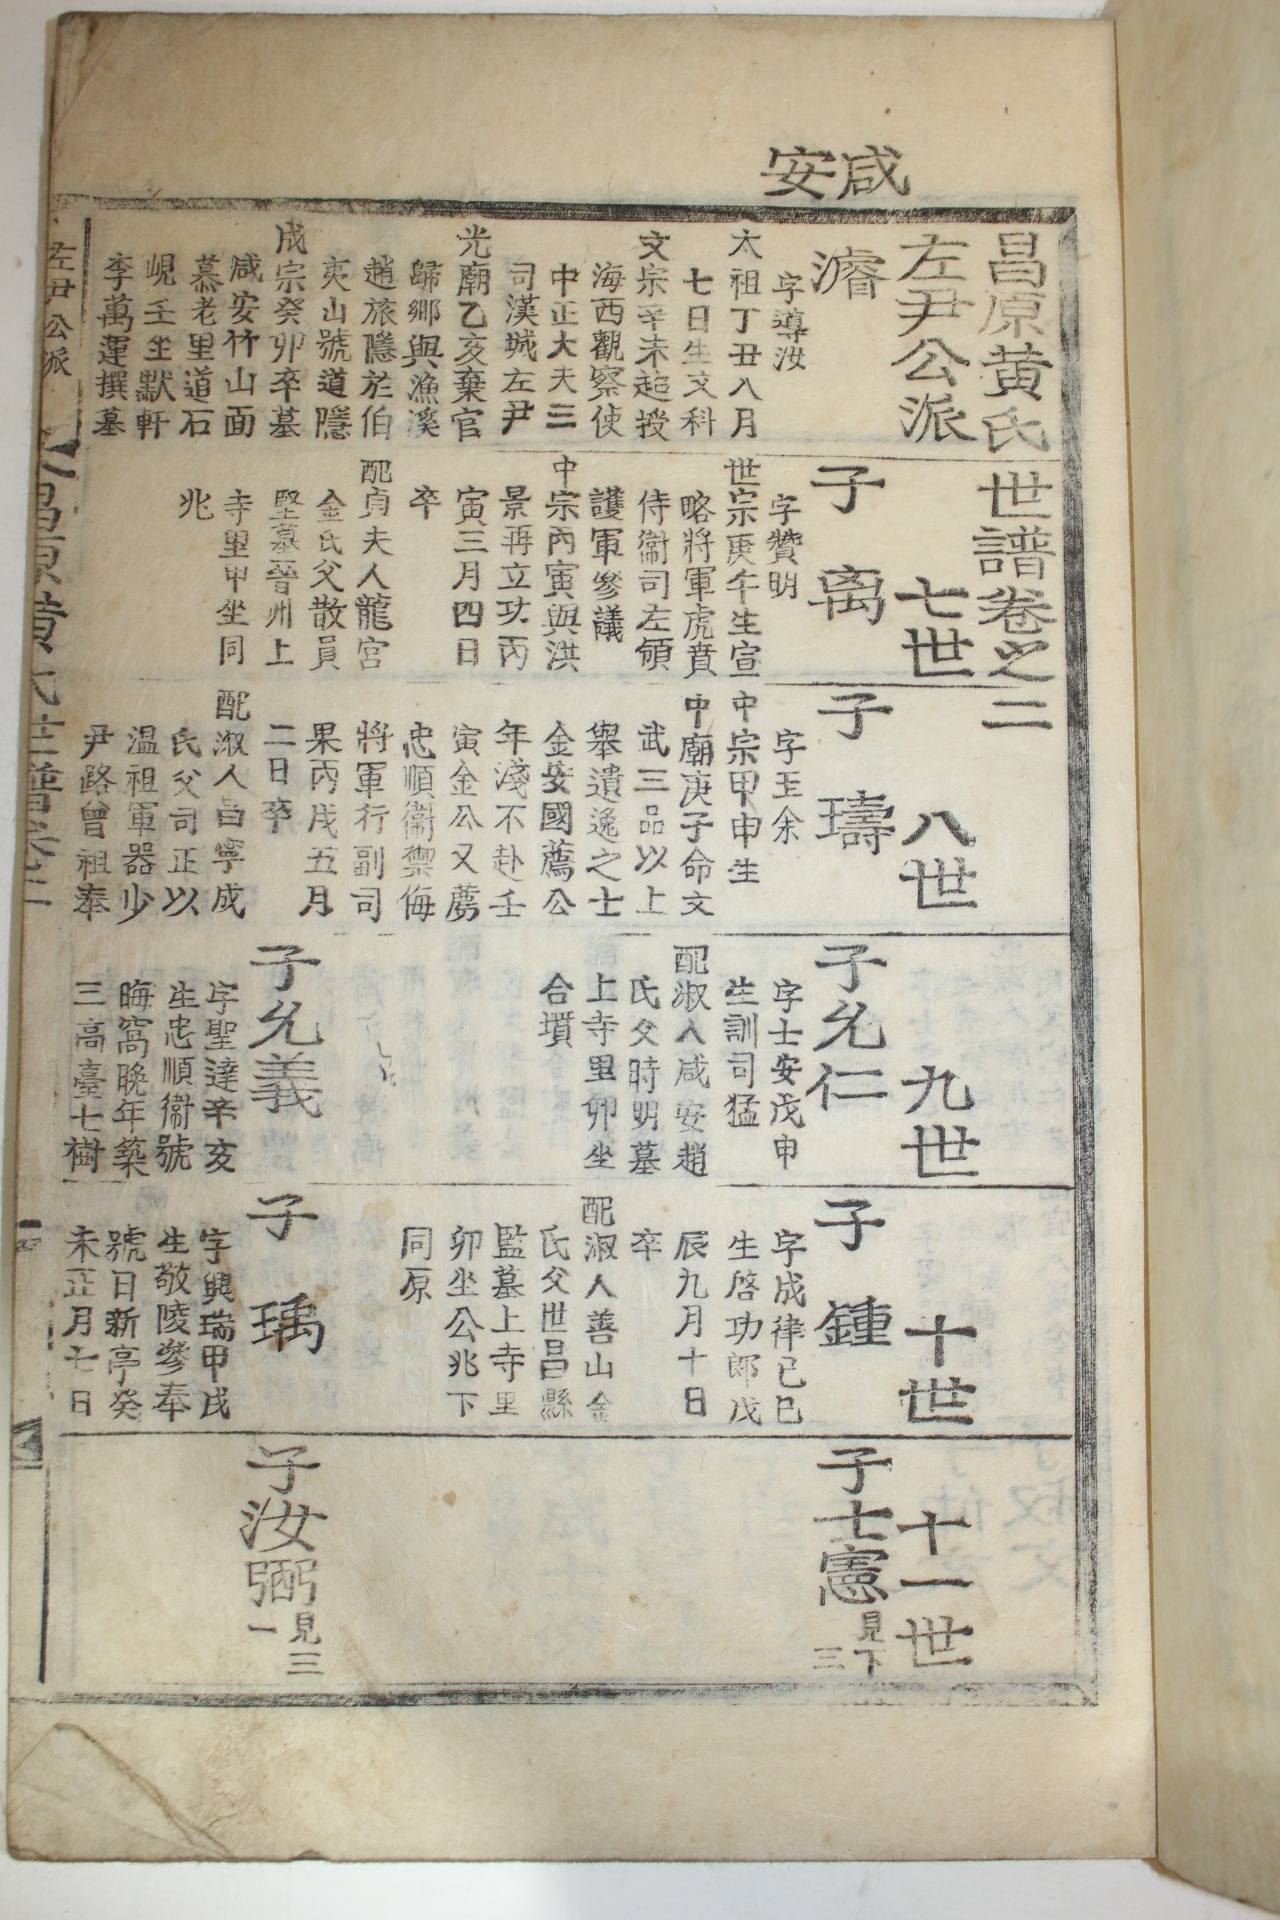 咸安
昌原黄氏世譜卷之二
左尹公派
七世
八世
九世
十世
十一世
濬
字導汝
太祖丁丑八月
七日生文科
文宗辛未超授
海西觀察使
中正大夫三
司漢城左尹
光廟乙亥棄官
歸鄉與漁溪
趙旅隱於伯
夷山號道隱
成宗癸卯卒墓
咸安竹山面
慕老里道石
峴壬坐默軒
李萬運撰墓
子离
字贊明
世宗庚午生宣
略將軍虎賁
侍衞司左領
護軍參議
中宗丙寅與洪
景再立功丙
寅三月四日
卒
配貞夫人龍宮
金氏父散員
堅墓晉州上
寺里甲坐同
兆
子璹
字玉余
中宗甲申生
中廟庚子命文
武三品以上
舉遺逸之士
金安國薦公
年淺不赴壬
寅金公又薦
忠順衞禦侮
將軍行副司
果丙戌五月
二日卒
配淑人昌寧成
氏父司正以
温祖軍器少
尹路曾祖奉
子允仁
字士安戊申
生訓司猛
配淑人咸安趙
氏父時明墓
上寺里卯坐
合墳
子允義
字聖達辛亥
生忠順衞號
晦窩晚年築
三高臺七樹
子鍾
字成律己巳
生啓功郎戊
辰九月十日
卒
配淑人善山金
氏父世昌縣
監墓上寺里
卯坐公兆下
同原
子瑀
字興瑞甲戌
生敬陵參奉
號日新亭癸
未正月七日
子士憲 見下三
子汝弼 見三一
左尹公派
昌原黄氏世譜卷之二
一